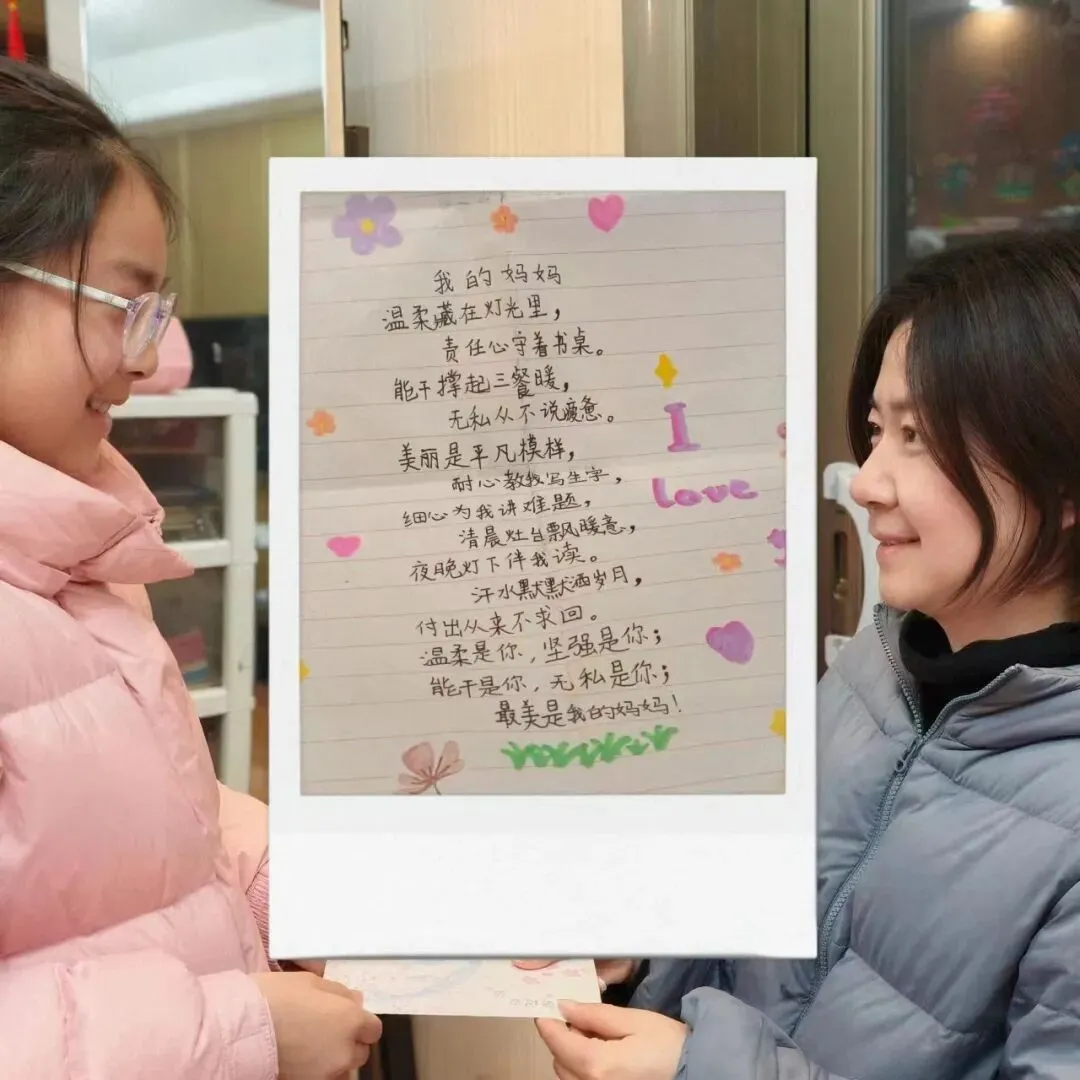 我的妈妈
温柔藏在灯光里，
责任心守着书桌。
能干撑起三餐暖，
无私从不说疲惫。
美丽是平凡模样，
耐心教我写生字，
细心为我讲难题，
清晨灶台飘暖意，
夜晚灯下伴我读。
汗水默默洒岁月，
付出从来不求回。
温柔是你，坚强是你；
能干是你，无私是你；
最美是我的妈妈！
I
Love